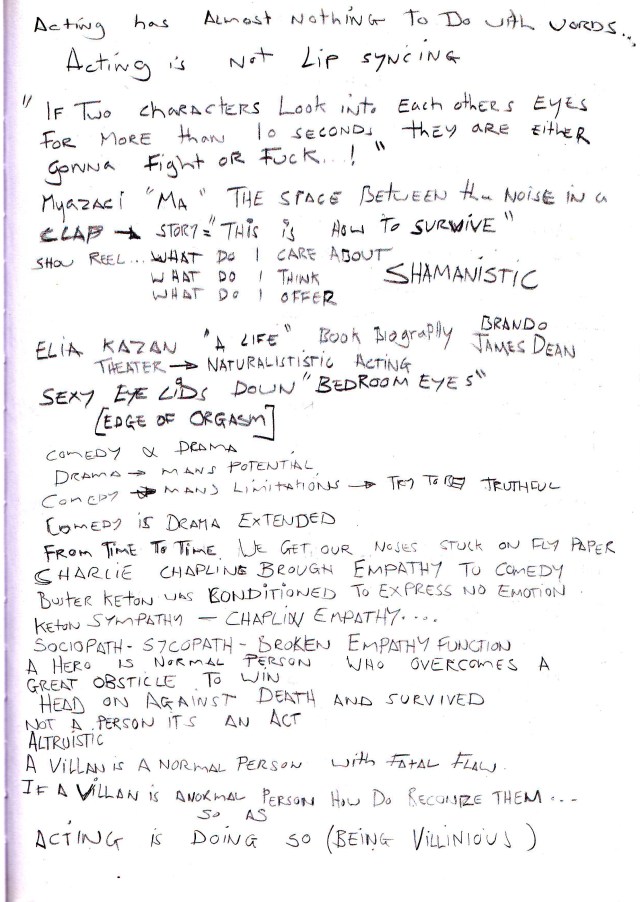 Acting has Almost Nothing To Do with words...
Acting is Not Lip syncing
"IF Two characters Look into Each others EYES
FOR MORE than 10 seconds they ARE EITHER
gonna Fight OR Fuck...!"
Myazaci "MA" THE SPACE BETWEEN the NOISE IN a
CLAP → STORY = "THIS is HOW TO SURVIVE"
SHOW REEL... WHAT DO I CARE ABOUT
WHAT DO I THINK SHAMANISTIC
WHAT DO I OFFER
ELIA KAZAN "A LIFE" Book Biography BRANDO
JAMES DEAN
THEATER → NATURALISTISTIC ACTING
SEXY EYE LIDS DOWN "BEDROOM EYES"
[EDGE OF ORGASM]
COMEDY & DRAMA
DRAMA → MANS POTENTIAL
COMEDY → MANS LIMITATIONS → TRY TO BE TRUTHFUL
COMEDY is DRAMA EXTENDED
FROM TIME TO TIME WE GET OUR NOSES STUCK ON FLY PAPER
CHARLIE CHAPLING BROUGH EMPATHY TO COMEDY
BUSTER KETON WAS CONDITIONED TO EXPRESS NO EMOTION
KETON SYMPATHY – CHAPLIN EMPATHY....
SOCIOPATH - SYCOPATH - BROKEN EMPATHY FUNCTION
A HERO IS NORMAL PERSON WHO OVERCOMES A
GREAT OBSTICLE TO WIN
HEAD ON AGAINST DEATH AND SURVIVED
NOT A PERSON ITS AN ACT
ALTRUISTIC
A VILLAN is A NORMAL PERSON with FATAL FLAW.
IF A VILLAN is A NORMAL PERSON HOW DO RECONIZE THEM...
SO AS
ACTING is DOING SO (BEING VILLINIOUS)